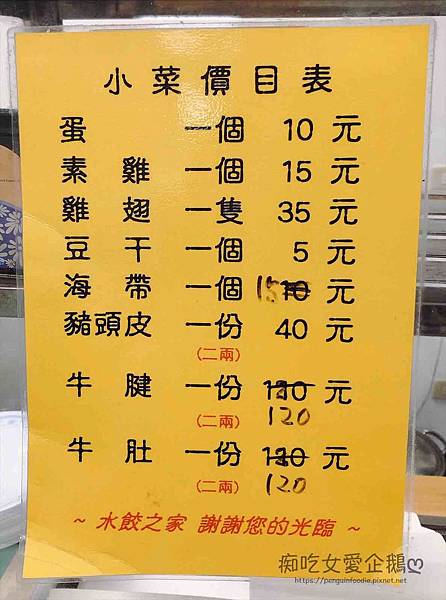 小菜價目表
蛋 一個 10 元
素雞 一個 15 元
雞翅 一隻 35 元
豆干 一個 5 元
海帶 一個 15 元
豬頭皮 一份 40 元
(二兩)
牛腱 一份 元
(二兩) 120
牛肚 一份 元
(二兩) 120
~ 水餃之家 謝謝您的光臨 ~
痴吃女愛企鵝
https://penguinfoodie.pixnet.net